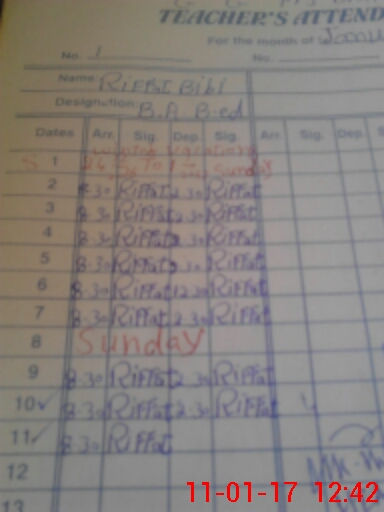 TEACHER'S ATTEND
For the month of
No. 1 No.
Name: Riffat Bibi
Designation: B.A B-ed
Dates Arr. Sig. Dep. Sig. Arr. Sig. Dep.
S 1 Sunday
2 8.30 Riffat 2.30 Riffat
3 8.30 Riffat 2.30 Riffat
4 8.30 Riffat 2.30 Riffat
5 8.30 Riffat 2.30 Riffat
6 8.30 Riffat 12.30 Riffat
7 8.30 Riffat 2.30 Riffat
8 Sunday
9 8.30 Riffat 2.30 Riffat
10 8.30 Riffat 2.30 Riffat
11 8.30 Riffat
12
13
11-01-17 12:42